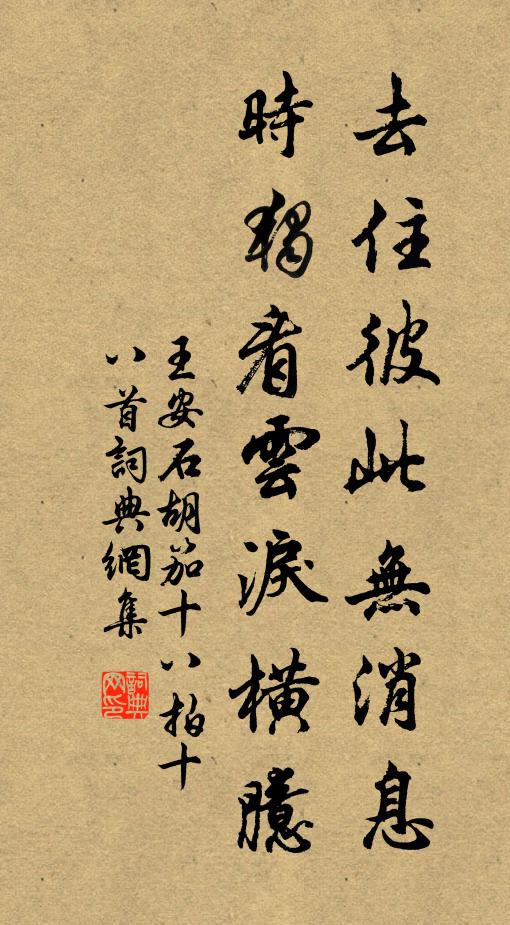 去住彼此無消息
時獨看雲淚橫臆
王安石胡笳十八拍十
八首詞典網集
詞典網印